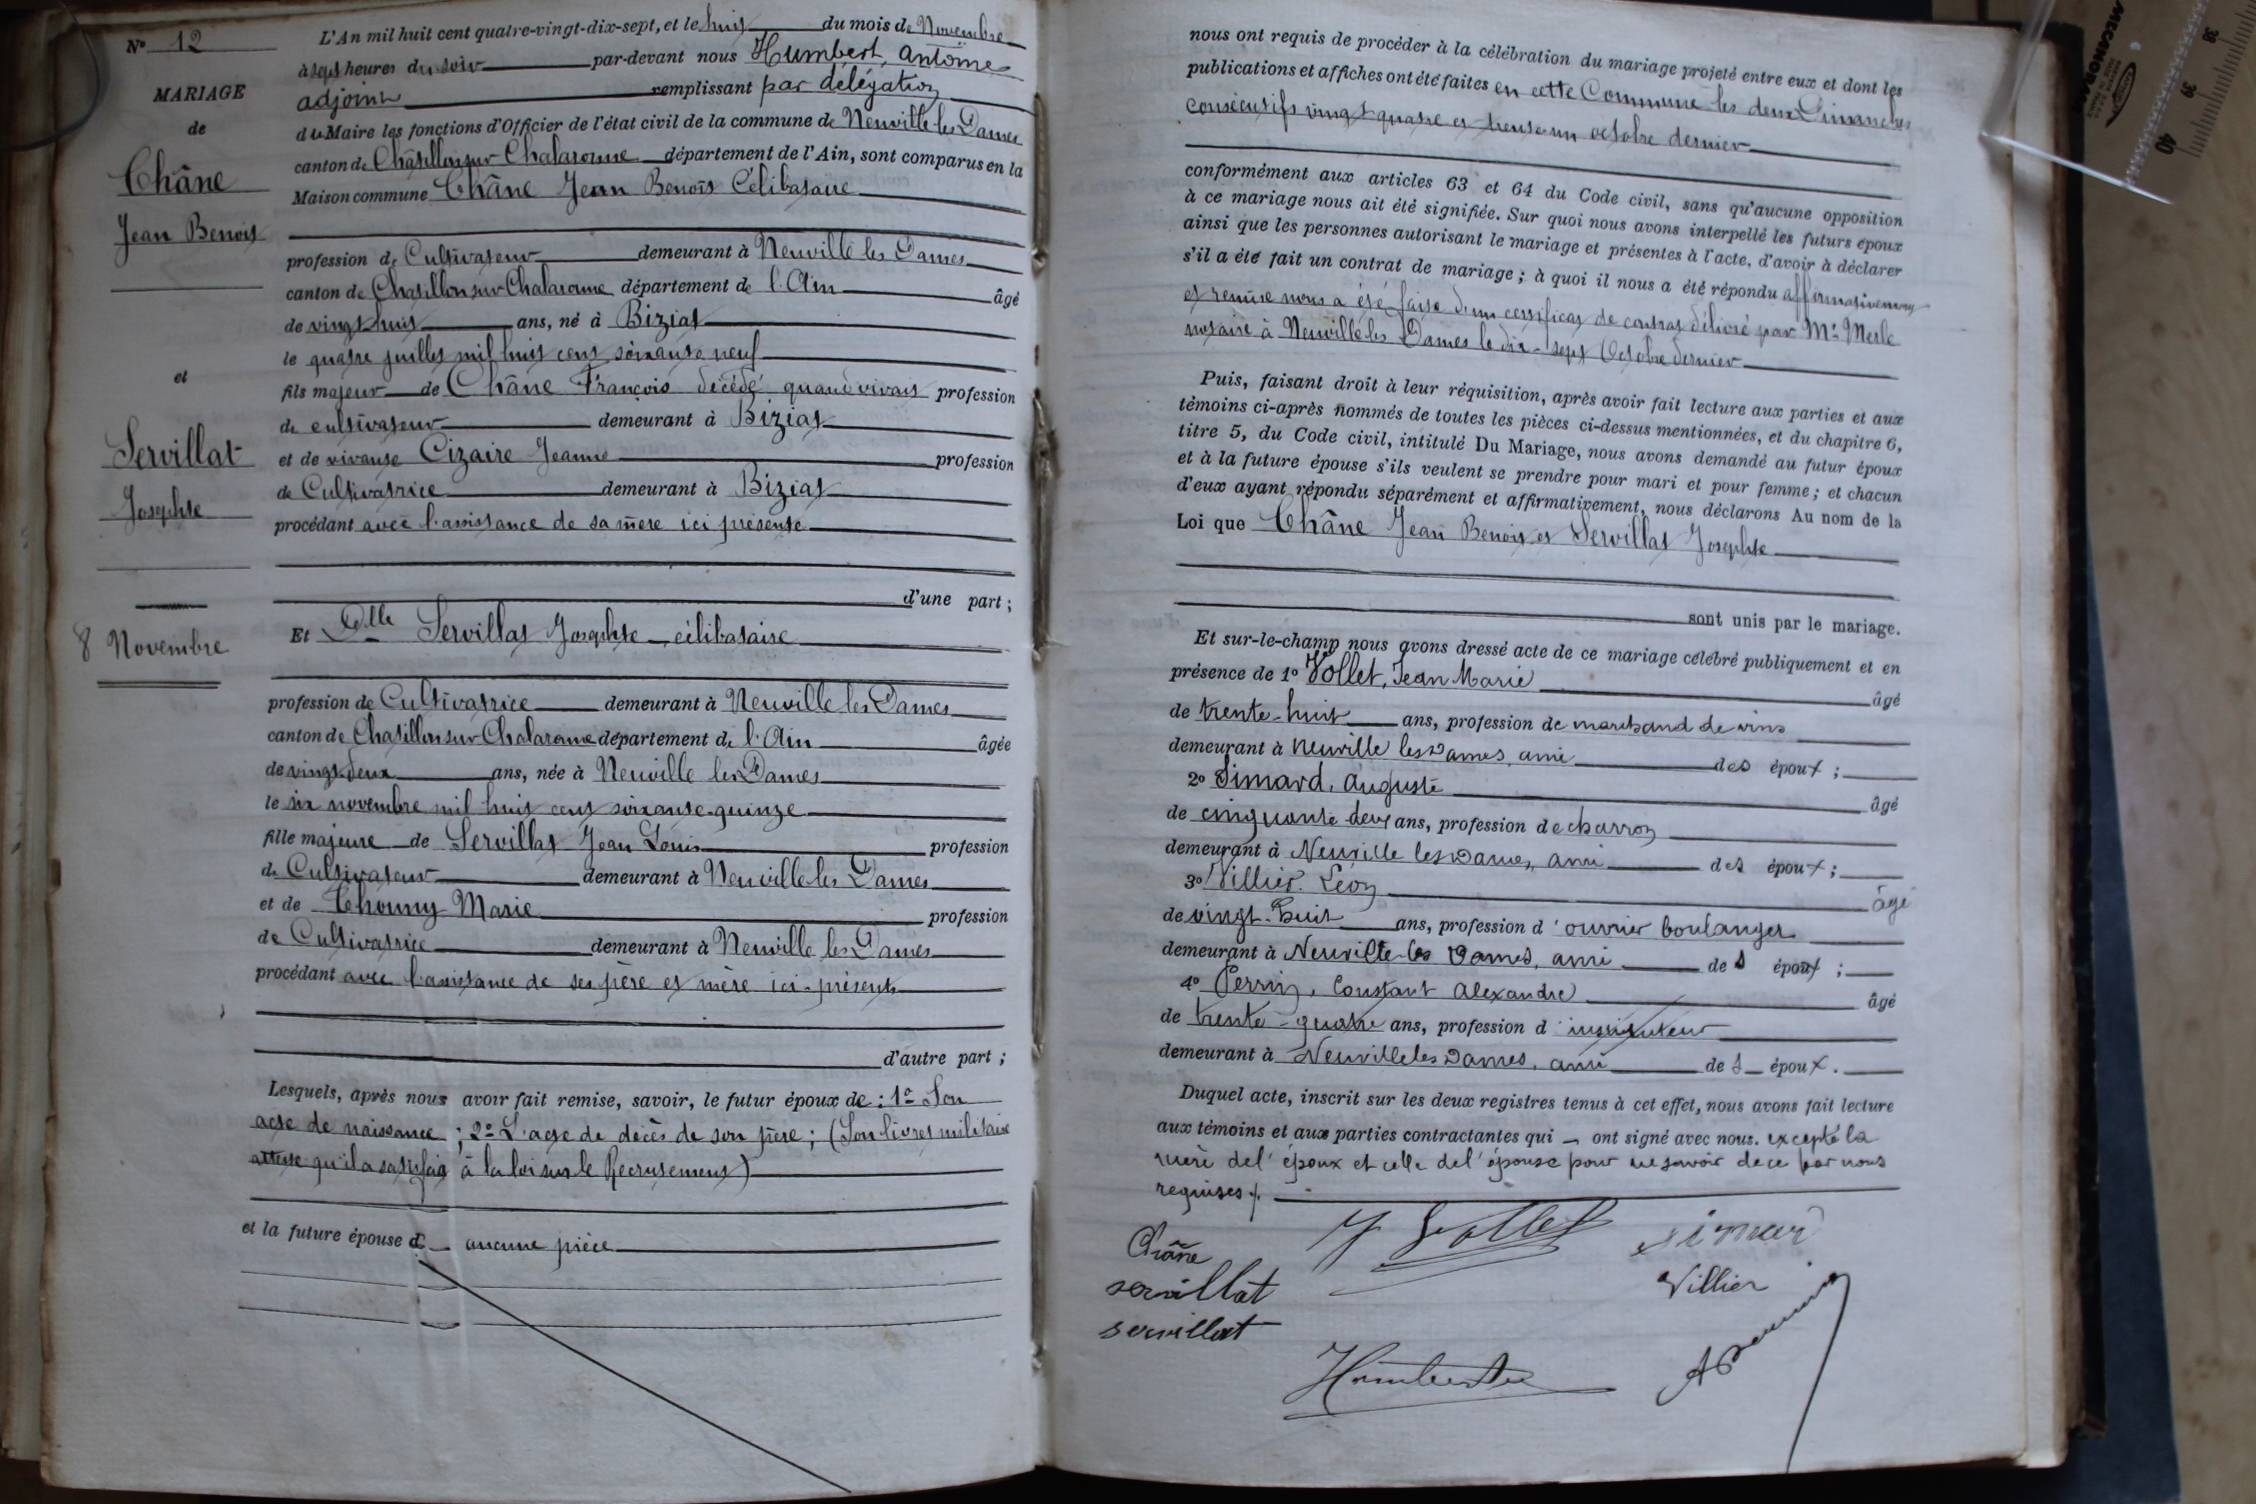 N° 12
MARIAGE
de
Châne
Jean Benoit
et
Servillat
Josephte
8 Novembre
L'An mil huit cent quatre-vingt-dix-sept, et le huit du mois de Novembre
à sept heures du soir par-devant nous Humbert, Antoine
adjoint remplissant par délégation
du Maire les fonctions d'Officier de l'état civil de la commune de Neuville les Dames
canton de Châtillon sur Chalaronne département de l'Ain, sont comparus en la
Maison commune Châne Jean Benoit Célibataire
profession de Cultivateur demeurant à Neuville les Dames
canton de Chatillon sur Chalaronne département de l'Ain âgé
de vingt huit ans, né à Biziat
le quatre juillet mil huit cent soixante neuf
fils majeur de Châne François décédé quand vivait profession
de cultivateur demeurant à Biziat
et de vivante Cizaire Jeanne profession
de Cultivatrice demeurant à Biziat
procédant avec l'assistance de sa mère ici présente
d'une part ;
Et Dlle Servillat Josephte célibataire
profession de Cultivatrice demeurant à Neuville les Dames
canton de Chatillon sur Chalaronne département de l'Ain âgée
de vingt-deux ans, née à Neuville les Dames
le six novembre mil huit cent soixante-quinze
fille majeure de Servillat Jean Louis profession
de Cultivateur demeurant à Neuville les Dames
et de Thouny Marie profession
de Cultivatrice demeurant à Neuville les Dames
procédant avec l'assistance de ses père et mère ici présents
d'autre part ;
Lesquels, après nous avoir fait remise, savoir, le futur époux de : 1° Son
acte de naissance ; 2° L'acte de décès de son père ; (Son livret militaire
atteste qu'il a satisfait à la loi sur le Recrutement)
et la future épouse d aucune pièce
nous ont requis de procéder à la célébration du mariage projeté entre eux et dont les
publications et affiches ont été faites en cette Commune les deux Dimanches
consécutifs vingt quatre et trente un octobre dernier
conformément aux articles 63 et 64 du Code civil, sans qu'aucune opposition
à ce mariage nous ait été signifiée. Sur quoi nous avons interpellé les futurs époux
ainsi que les personnes autorisant le mariage et présentes à l'acte, d'avoir à déclarer
s'il a été fait un contrat de mariage ; à quoi il nous a été répondu affirmativement
et remise nous a été faite d'un certificat de contrat délivré par Me Merle
notaire à Neuville les Dames le dix-sept Octobre dernier
Puis, faisant droit à leur réquisition, après avoir fait lecture aux parties et aux
témoins ci-après nommés de toutes les pièces ci-dessus mentionnées, et du chapitre 6,
titre 5, du Code civil, intitulé Du Mariage, nous avons demandé au futur époux
et à la future épouse s'ils veulent se prendre pour mari et pour femme ; et chacun
d'eux ayant répondu séparément et affirmativement, nous déclarons Au nom de la
Loi que Châne Jean Benoit et Servillat Josephte
sont unis par le mariage.
Et sur-le-champ nous avons dressé acte de ce mariage célébré publiquement et en
présence de 1° Vollet, Jean Marie âgé
de trente-huit ans, profession de marchand de vins
demeurant à Neuville les Dames, ami des époux ;
2° Simard, Auguste âgé
de cinquante deux ans, profession de charron
demeurant à Neuville les Dames, ami des époux ;
3° Villier Léon âgé
de vingt-huit ans, profession d'ouvrier boulanger
demeurant à Neuville les Dames, ami des époux ;
4° Perrin, Constant Alexandre âgé
de trente-quatre ans, profession d'instituteur
demeurant à Neuville les Dames, ami des époux.
Duquel acte, inscrit sur les deux registres tenus à cet effet, nous avons fait lecture
aux témoins et aux parties contractantes qui ont signé avec nous. excepté la
mère de l'époux et celle de l'épouse pour ne savoir de ce par nous
requises ./.
Châne
J Vollet
Simar
servillat
Villier
servillat
Humbert
38
39
40